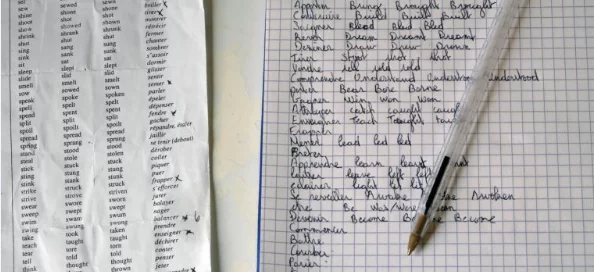 sew sewed sewn
shine shone shone
shoot shot shot
show showed shown montrer
shrink shrunk shrunk rétrécir
shut shut shut fermer
sing sang sung chanter
sink sank sunk sombrer
sit sat sat s'asseoir
sleep slept slept dormir
slide slid slid glisser
smell smelt smelt sentir
sow sowed sown semer x
speak spoke spoken parler
spell spelt spelt épeler
spend spent spent dépenser
split split split fendre
spoil spoilt spoilt gâcher
spread spread spread répandre, étaler
spring sprang sprung jaillir
stand stood stood se tenir (debout)
steal stole stolen dérober
stick stuck stuck coller
sting stung stung piquer
stink stank stunk puer
strike struck struck frapper x
strive strove striven s'efforcer
swear swore sworn jurer
sweep swept swept balayer
swim swam swum nager
swing swung swung balancer
take took taken prendre
teach taught taught enseigner
tear tore torn déchirer
tell told told conter
think thought thought penser
thrown jeter
Apporter Bring Brought Brought
Construire Build Built Built
Saigner Bleed Bled Bled
Rêver Dream Dreamt Dreamt
Dessiner Draw Drew Drawn
Tirer Shoot shot shot
Vendre sell sold sold
Comprendre Understand Understood Understood
porter Bear Bore Borne
Gagner Win won Won
Attraper catch caught caught
Enseigner Teach Taught
Frapper
Mener lead led led
Apprendre learn learnt
laisser leave left left
éclairer light lit lit
Se réveiller Awake
être Be Was/Were Been
Devenir Become Become
Commencer
Battre
Courber
Parier